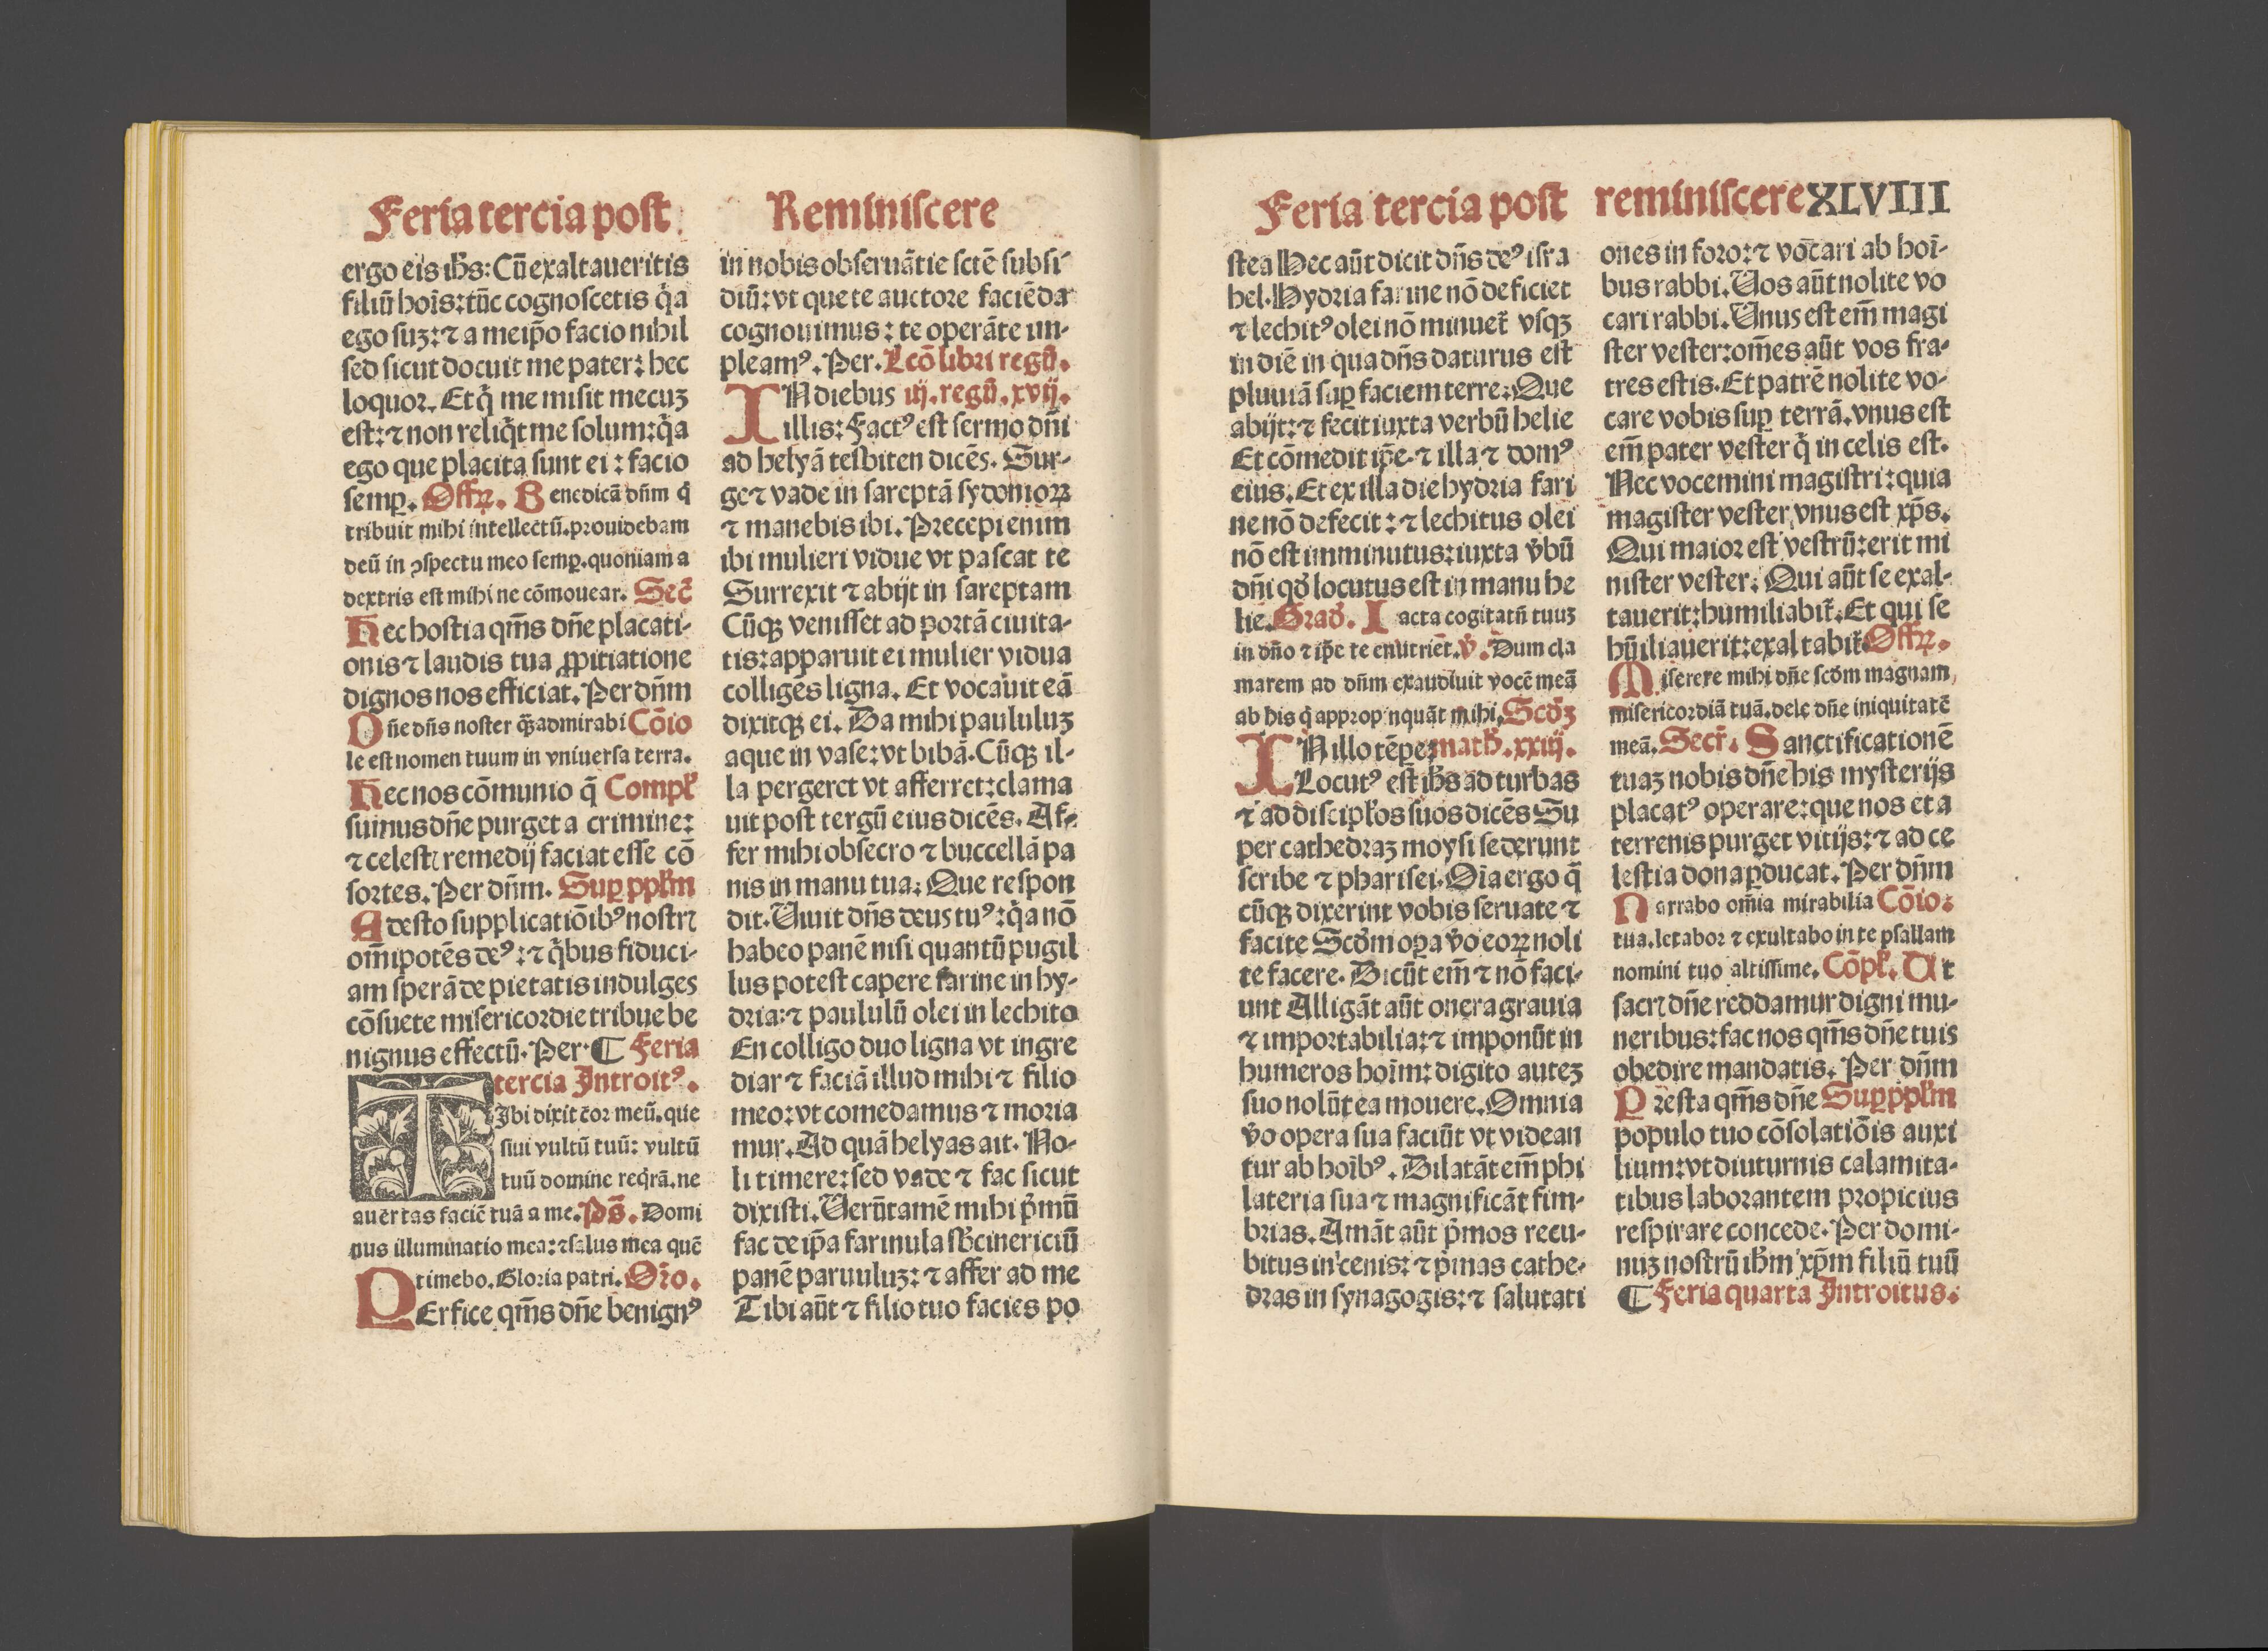 Feria tercia post Reminiſcere
ergo eis ihs̄: Cū exaltaueritis
filiū hoīs: tūc cognoſcetis q̇a
ego ſuꝫ: ⁊ a meip̄o facio nihil
ſed ſicut docuit me pater: hec
loquor. Et q̇ me miſit mecuꝫ
eſt: ⁊ non reliq̇t me ſolum: q̇a
ego que placita ſunt ei: facio
ſemꝑ. Offꝝ. Benedicā dn̄m q̇
tribuit mihi intellectū. prouidebam
deū in ↄſpectu meo ſemꝑ. quoniam a
dextris eſt mihi ne cōmouear. Sec̄
Hec hoſtia qm̄s dn̄e placati-
onis ⁊ laudis tua ꝓpitiatione
dignos nos efficiat. Per dn̄m
Dn̄e dn̄s noſter qꝫ admirabi Cōio
le eſt nomen tuum in vniuerſa terra.
Hec nos cōmunio q̄ Compl̄
ſumus dn̄e purget a crimine:
⁊ celeſtꝭ remedij faciat eſſe cō
ſortes. Per dn̄m. Suꝑ ppl̄m
Adeſto ſupplicatiōibꝰ noſtrꝭ
om̄ipotēs deꝰ: ⁊ q̇bus fiduci-
am ſperāde pietatis indulges
cōſuete miſericordie tribue be
nignus effectū. Per. ¶ Feria
tercia Introitꝰ.
Tibi dixit cor meū. que
ſiui vultū tuū: vultū
tuū domine req̇rā. ne
auertas faciē tuā a me. Ps̄. Domi
nus illuminatio mea: ⁊ ſalus mea quē
timebo. Gloria patri. Orō.
PErfice qm̄s dn̄e benignꝰ
in nobis obſeruātie ſctē ſubſi-
diū: vt que te auctore faciēda
cognouimus: te operāte im-
pleamꝰ. Per. Lcō libri regū.
IN diebus iij. regū. xvij.
illis: Factꝰ eſt ſermo dn̄i
ad helyā tesbiten dicēs. Sur-
ge ⁊ vade in ſareptā ſydonioꝝ
⁊ manebis ibi. Precepi enim
ibi mulieri vidue vt paſcat te
Surrexit ⁊ abijt in ſareptam
Cūqꝫ veniſſet ad portā ciuita-
tis: apparuit ei mulier vidua
colligēs ligna. Et vocauit eā
dixitqꝫ ei. Da mihi paululuꝫ
aque in vaſe: vt bibā. Cūqꝫ il-
la pergeret vt afferret: clama
uit poſt tergū eius dicēs. Af-
fer mihi obſecro ⁊ buccellā pa
nis in manu tua: Que reſpon
dit. Uiuit dn̄s deus tuꝰ: q̇a nō
habeo panē niſi quantū pugil
lus poteſt capere farine in hy-
dria: ⁊ paululū olei in lechito
En colligo duo ligna vt ingre
diar ⁊ faciā illud mihi ⁊ filio
meo: vt comedamus ⁊ moria
mur. Ad quā helyas ait. No-
li timere: ſed vade ⁊ fac ſicut
dixiſti. Uerūtamē mihi ṗmū
fac de ip̄a farinula ſb̄cinericiū
panē paruuluꝫ: ⁊ affer ad me
Tibi aūt ⁊ filio tuo facies po
Feria tercia poſt reminiſcere XLVIII
ſtea Hec aūt dicit dn̄s deꝰ iſra
hel. Hydria farine nō deficiet
⁊ lechitꝰ olei nō minuet᷑ vſqꝫ
in diē in qua dn̄s daturus eſt
pluuiā ſuꝑ faciem terre: Que
abijt: ⁊ fecit iuxta verbū helie
Et cōmedit ip̄e. ⁊ illa ⁊ domꝰ
eius. Et ex illa die hydria fari
ne nō defecit: ⁊ lechitus olei
nō eſt imminutus: iuxta v̇bū
dn̄i qd̄ locutus eſt in manu he
lie. Grad̄. Iacta cogitatū tuuꝫ
in dn̄o ⁊ ip̄e te enutriet. v̇. Dum cla
marem ad dn̄m exaudiuit vocē meā
ab his q̇ appropinquāt mihi. Scd̄ꝫ
IN illo tēpe: math̄. xxiij.
Locutꝰ eſt ihs̄ ad turbas
⁊ ad diſcipl̄os ſuos dicēs Su
per cathedraꝫ moyſi ſederunt
ſcribe ⁊ phariſei. Oīa ergo q̄
cūqꝫ dixerint vobis ſeruate ⁊
facite Scd̄m oꝑa v̇o eoꝝ noli
te facere. Dicūt em̄ ⁊ nō faci-
unt Alligāt aūt onera grauia
⁊ importabilia: ⁊ imponūt in
humeros hoīm: digito auteꝫ
ſuo nolūt ea mouere. Omnia
v̇o opera ſua faciūt vt videan
tur ab hoībꝰ. Dilatāt em̄ phi
lateria ſua ⁊ magnificāt fim-
brias. Amāt aūt ṗmos recu-
bitus in cenis: ⁊ ṗmas cathe-
dras in ſynagogis: ⁊ ſalutati
ones in foro: ⁊ vocari ab hoī-
bus rabbi. Uos aūt nolite vo
cari rabbi. Unus eſt em̄ magi
ſter veſter: om̄es aūt vos fra-
tres eſtis. Et patrē nolite vo-
care vobis ſuꝑ terrā. vnus eſt
em̄ pater veſter q̇ in celis eſt.
Nec vocemini magiſtri: quia
magiſter veſter vnus eſt xp̄s.
Qui maior eſt veſtrū: erit mi
niſter veſter. Qui aūt ſe exal-
tauerit: humiliabit᷑. Et qui ſe
hūiliauerit: exaltabit᷑. Offꝝ.
Miſerere mihi dn̄e ſcd̄m magnam
miſericordiā tuā. dele dn̄e iniquitatē
meā. Secr̄. Sanctificationē
tuaꝫ nobis dn̄e his myſterijs
placatꝰ operare: que nos et a
terrenis purget vitijs: ⁊ ad ce
leſtia dona ꝑducat. Per dn̄m
Narrabo om̄ia mirabilia Cōio:
tua. letabor ⁊ exultabo in te pſallam
nomini tuo altiſſime. Cōpl̄. Ut
ſacrꝭ dn̄e reddamur digni mu-
neribus: fac nos qm̄s dn̄e tuis
obedire mandatis. Per dn̄m
Preſta qm̄s dn̄e Suꝑ ppl̄m
populo tuo cōſolatiōis auxi
lium: vt diuturnis calamita-
tibus laborantem propicius
reſpirare concede. Per domi-
nuꝫ noſtrū ihm̄ xp̄m filiū tuū
¶ Feria quarta Introitus.